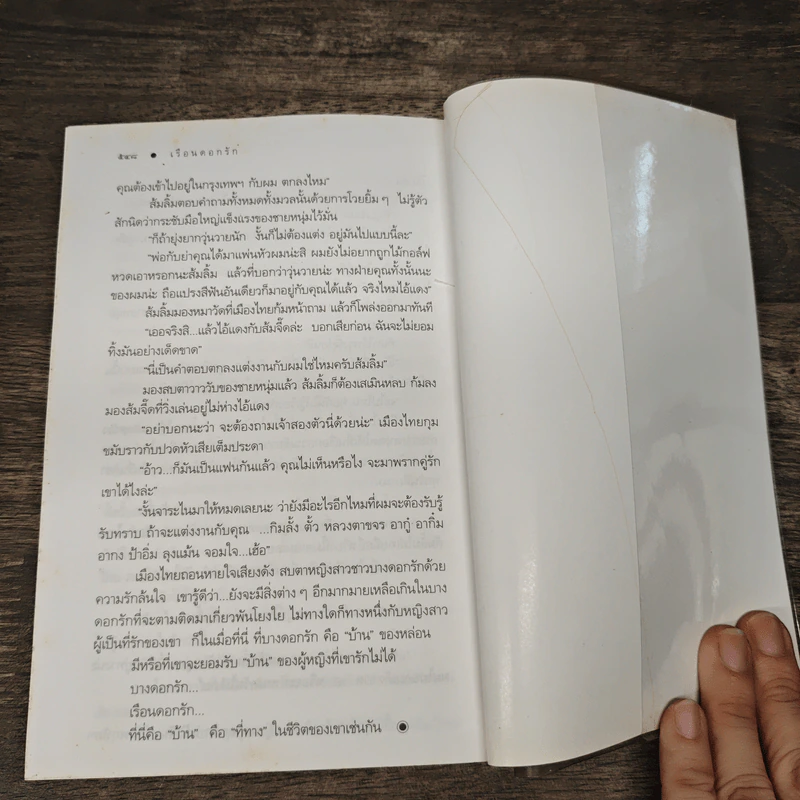 ๕๔๘ ● เรือนดอกรัก
คุณต้องเข้าไปอยู่ในกรุงเทพฯ กับผม ตกลงไหม"
ส้มลิ้มตอบคำถามทั้งหมดทั้งมวลนั้นด้วยการโวยยิ้ม ๆ ไม่รู้ตัว
สักนิดว่ากระชับมือใหญ่แข็งแรงของชายหนุ่มไว้มั่น
"ก็ถ้ายุ่งยากวุ่นวายนัก งั้นก็ไม่ต้องแต่ง อยู่มันไปแบบนี้ละ"
"พ่อกับย่าคุณได้มาแพ่นหัวผมน่ะสิ ผมยังไม่อยากถูกไม้กอล์ฟ
หวดเอาหรอกนะส้มลิ้ม แล้วที่บอกว่าวุ่นวายน่ะ ทางฝ่ายคุณทั้งนั้นนะ
ของผมน่ะ ถือแปรงสีฟันอันเดียวก็มาอยู่กับคุณได้แล้ว จริงไหมไอ้แดง"
ส้มลิ้มมองหมาวัดที่เมืองไทยก้มหน้าถาม แล้วก็โพล่งออกมาทันที
"เออจริงสิ...แล้วไอ้แดงกับส้มจี๊ดล่ะ บอกเสียก่อน ฉันจะไม่ยอม
ทิ้งมันอย่างเด็ดขาด"
"นี่เป็นคำตอบตกลงแต่งงานกับผมใช่ไหมครับส้มลิ้ม"
มองสบตาวาววับของชายหนุ่มแล้ว ส้มลิ้มก็ต้องเสเมินหลบ ก้มลง
มองส้มจี๊ดที่วิ่งเล่นอยู่ไม่ห่างไอ้แดง
"อย่าบอกนะว่า จะต้องถามเจ้าสองตัวนี่ด้วยน่ะ" เมืองไทยกุม
ขมับราวกับปวดหัวเสียเต็มประดา
"อ้าว...ก็มันเป็นแฟนกันแล้ว คุณไม่เห็นหรือไง จะมาพรากคู่รัก
เขาได้ไงล่ะ"
"งั้นจาระไนมาให้หมดเลยนะ ว่ายังมีอะไรอีกไหมที่ผมจะต้องรับรู้
รับทราบ ถ้าจะแต่งงานกับคุณ ...กิมลั้ง ตั้ว หลวงตาขจร อากู๋ อากิ๋ม
อากง ป้าอิ่ม ลุงแม้น จอมใจ...เฮ้อ"
เมืองไทยถอนหายใจเสียงดัง สบตาหญิงสาวชาวบางดอกรักด้วย
ความรักล้นใจ เขารู้ดีว่า...ยังจะมีสิ่งต่าง ๆ อีกมากมายเหลือเกินในบาง
ดอกรักที่จะตามติดมาเกี่ยวพันโยงใย ไม่ทางใดก็ทางหนึ่งกับหญิงสาว
ผู้เป็นที่รักของเขา ก็ในเมื่อที่นี่ ที่บางดอกรัก คือ "บ้าน" ของหล่อน
มีหรือที่เขาจะยอมรับ "บ้าน" ของผู้หญิงที่เขารักไม่ได้
บางดอกรัก...
เรือนดอกรัก...
ที่นี่คือ "บ้าน" คือ "ที่ทาง" ในชีวิตของเขาเช่นกัน